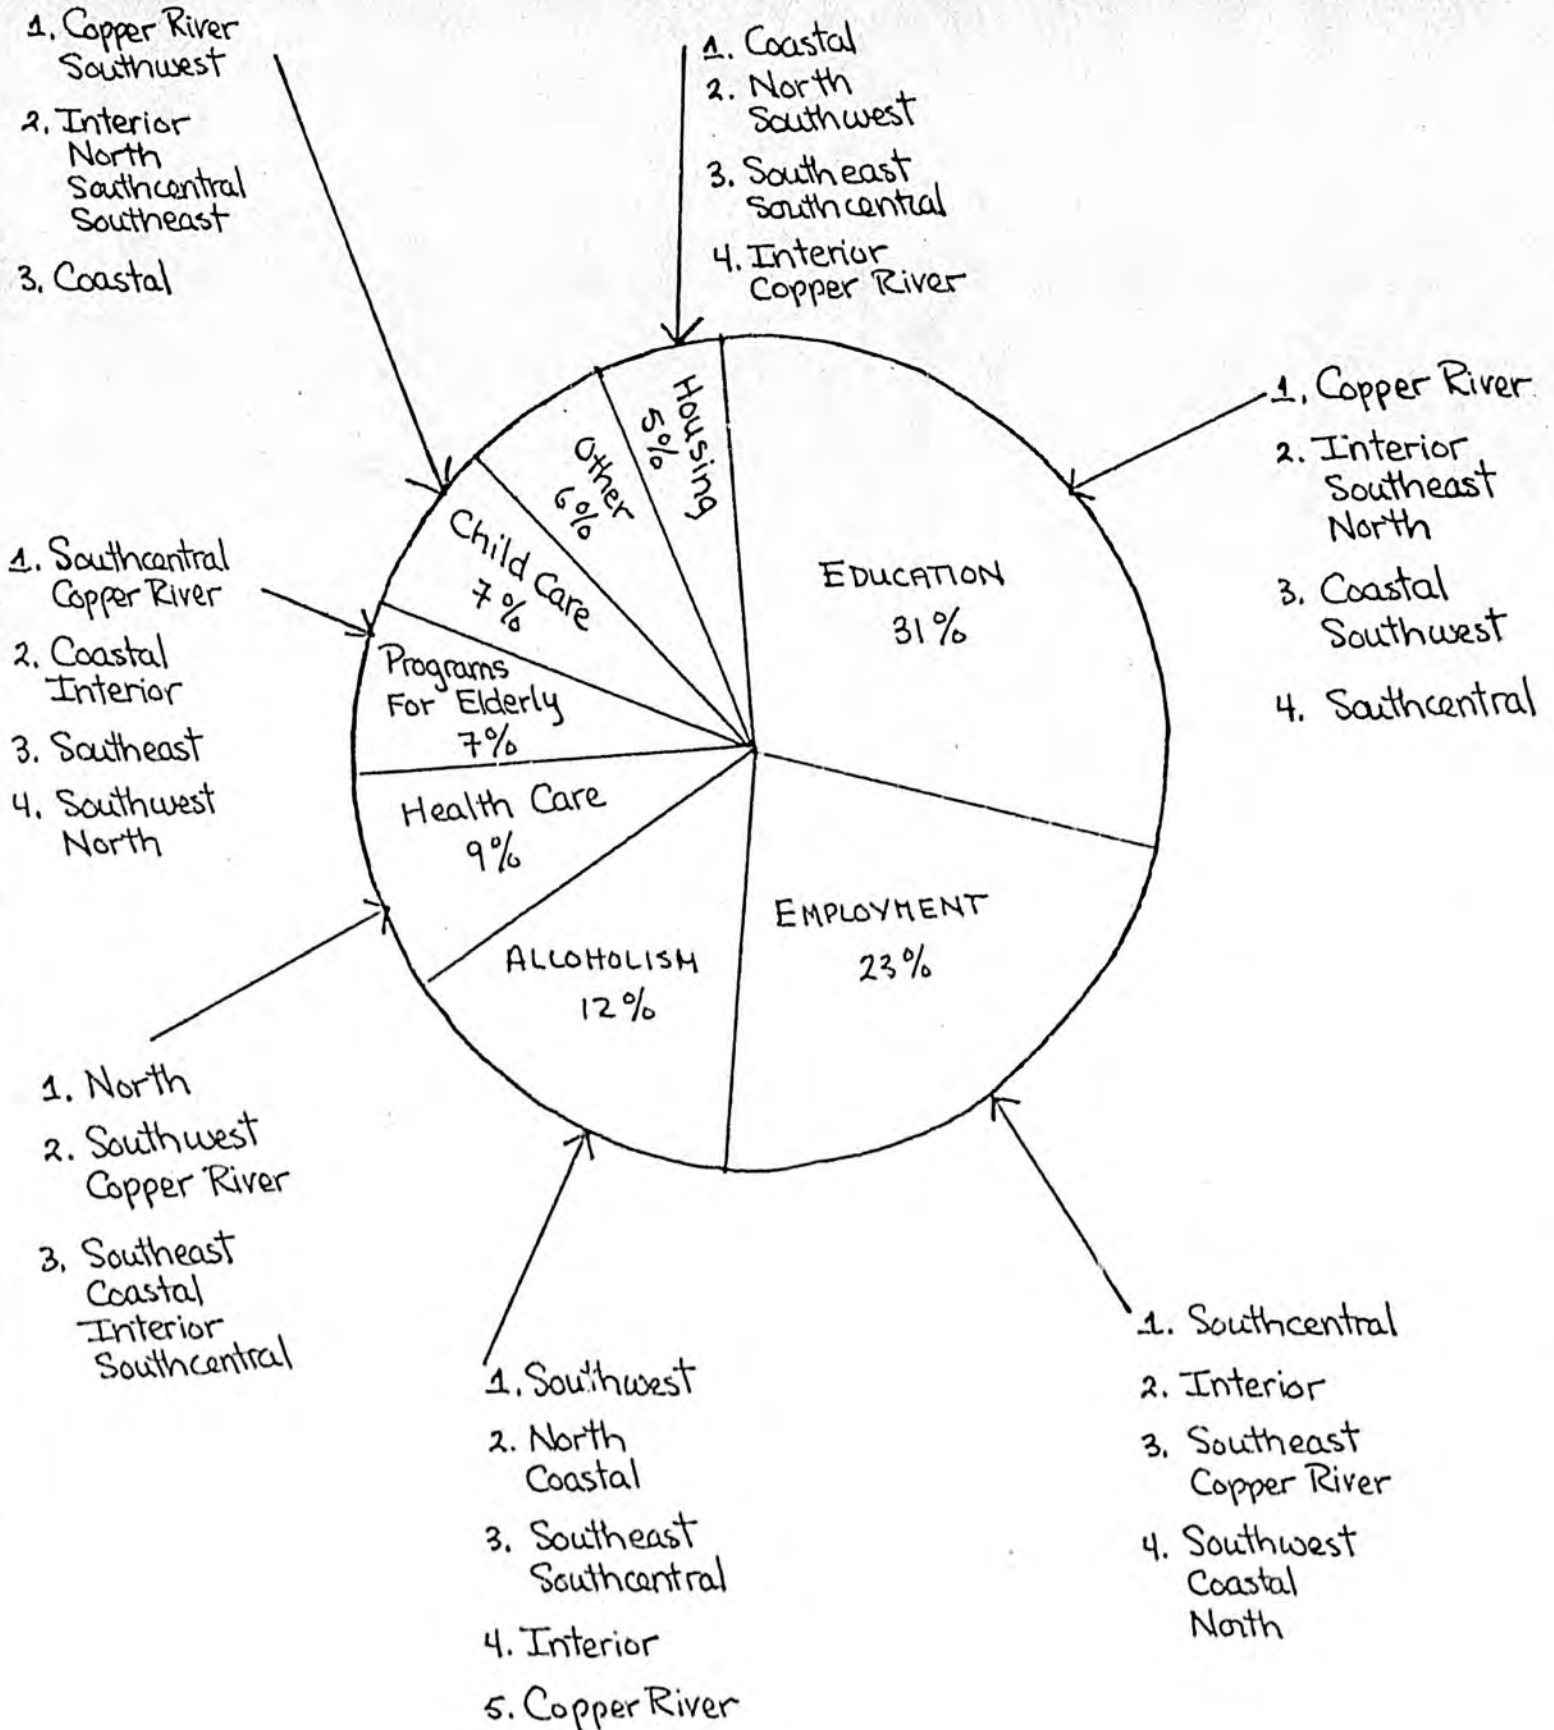 1. Copper River
Southwest
2. Interior
North
Southcentral
Southeast
3. Coastal
1. Coastal
2. North
Southwest
3. Southeast
Southcentral
4. Interior
Copper River
1. Copper River
2. Interior
Southeast
North
3. Coastal
Southwest
4. Southcentral
1. Southcentral
Copper River
2. Coastal
Interior
3. Southeast
4. Southwest
North
Housing
5%
Other
6%
Child Care
7%
Programs
For Elderly
7%
Health Care
9%
ALCOHOLISM
12%
EDUCATION
31%
EMPLOYMENT
23%
1. North
2. Southwest
Copper River
3. Southeast
Coastal
Interior
Southcentral
1. Southwest
2. North
Coastal
3. Southeast
Southcentral
4. Interior
5. Copper River
1. Southcentral
2. Interior
3. Southeast
Copper River
4. Southwest
Coastal
North